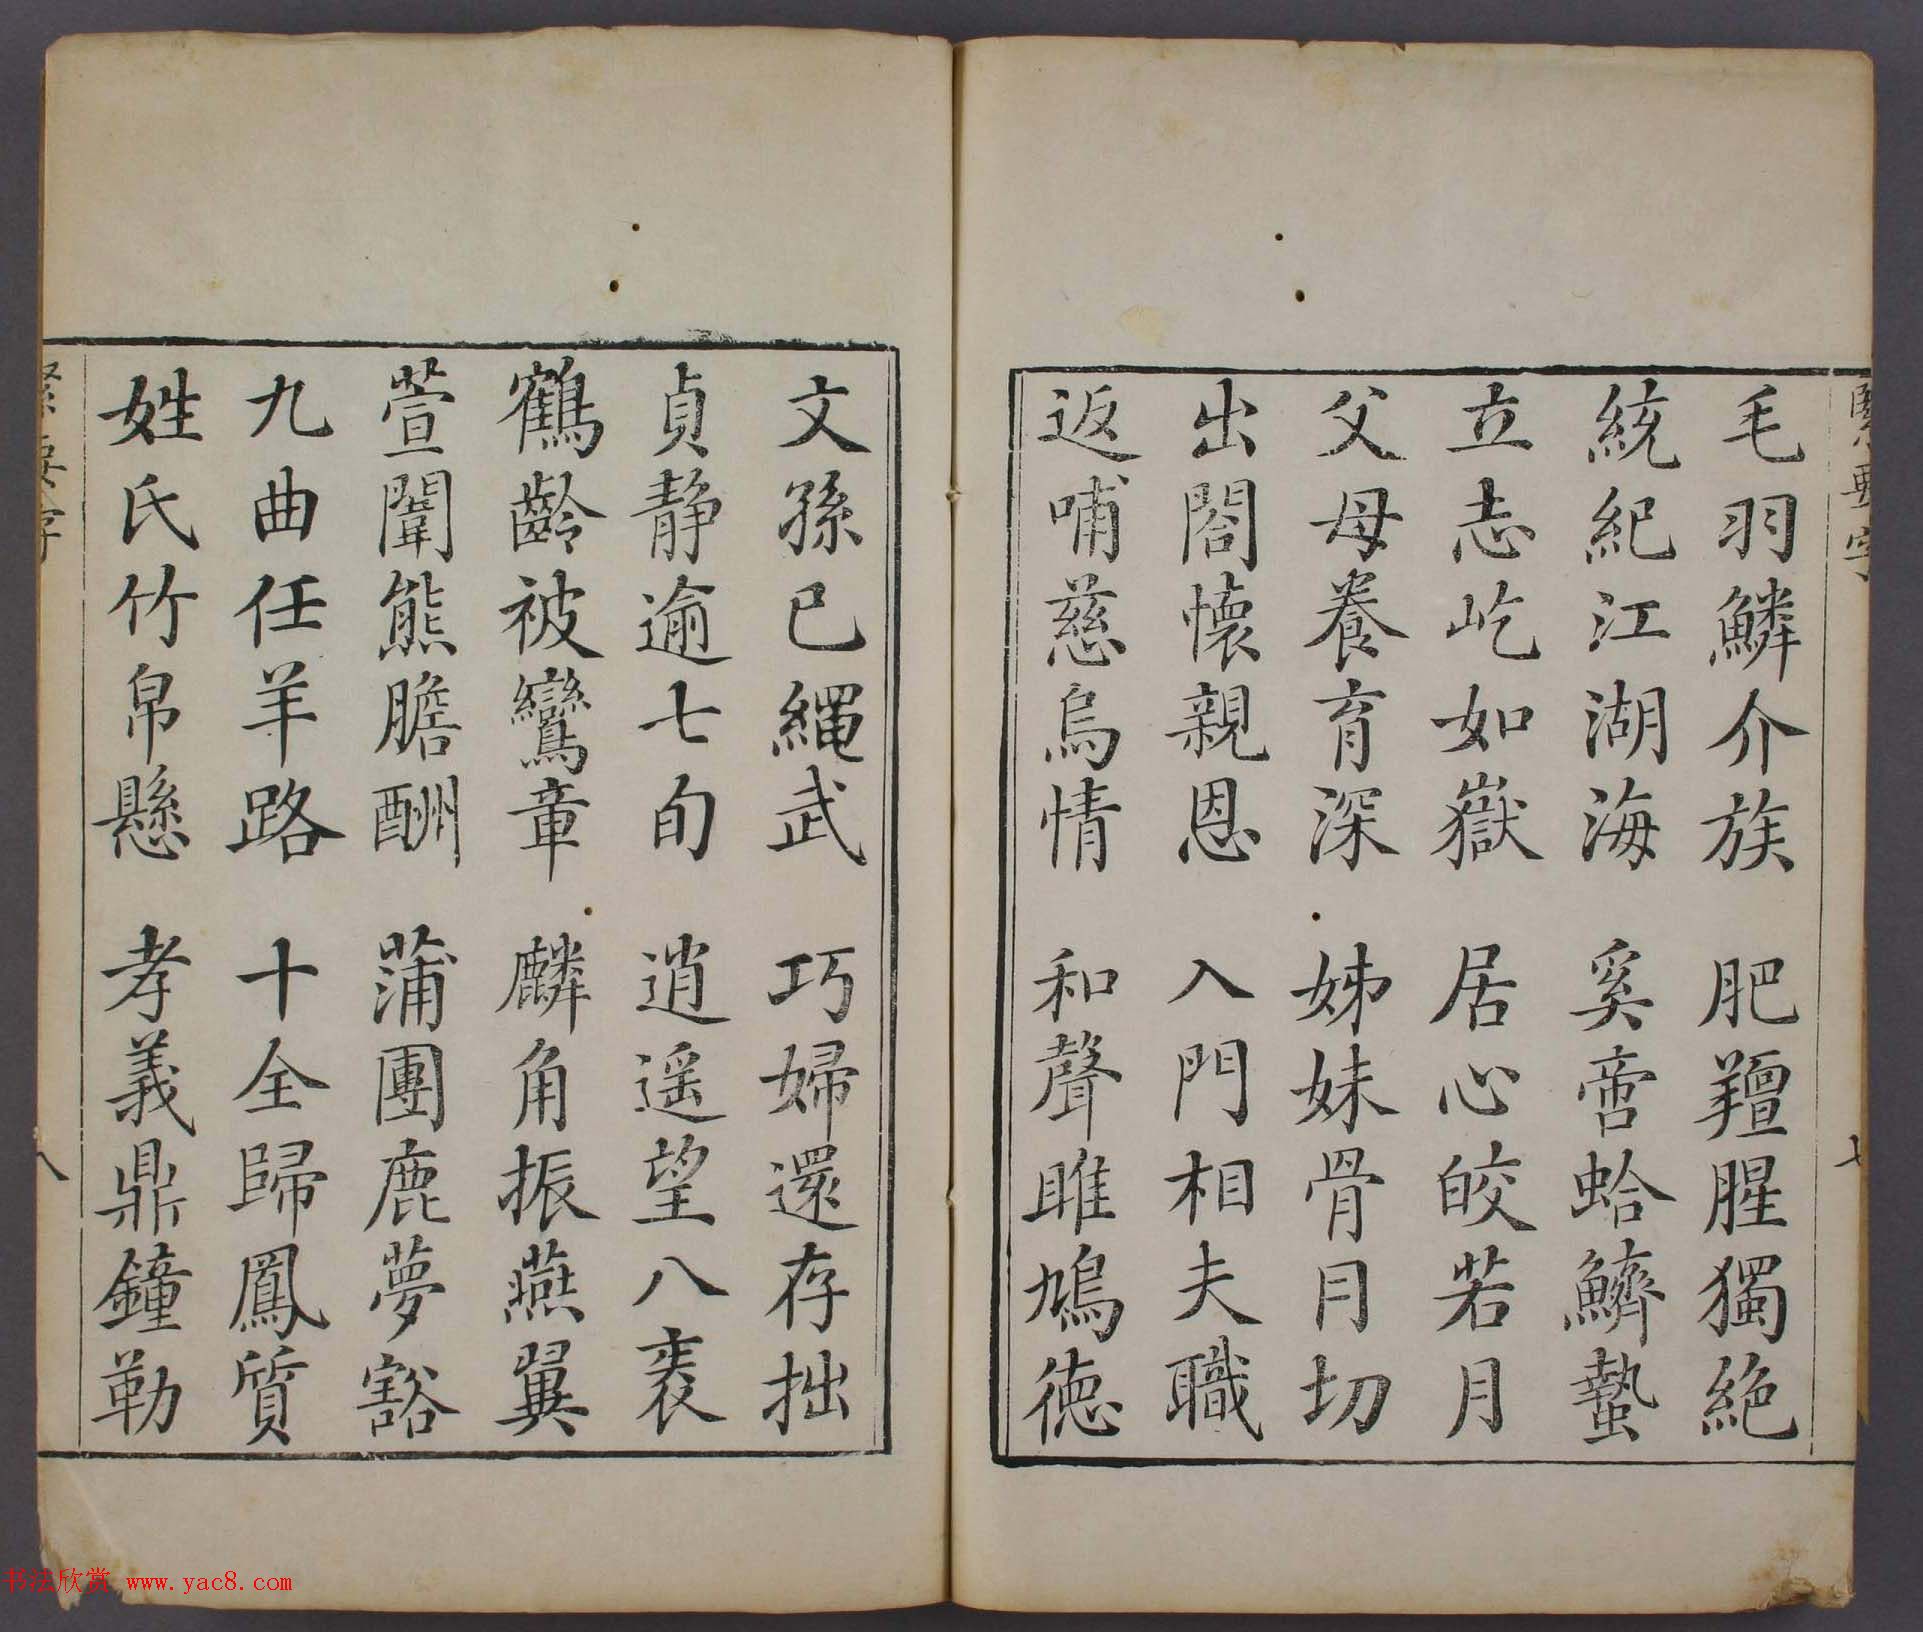 緊要字
七
毛羽鱗介族 肥羶腥獨絶
統紀江湖海 奚啻蛤鱭蟄
立志屹如嶽 居心皎若月
父母養育深 姊妹骨月切
出閤懷親恩 入門相夫職
返哺慈烏情 和聲雎鳩徳
文孫已繩武 巧婦還存拙
貞靜逾七旬 逍遥望八袠
鶴齡被鸞章 麟角振燕翼
萱闈熊膽酬 蒲團鹿夢豁
九曲任羊路 十全歸鳳質
姓氏竹帛懸 孝義鼎鐘勒
緊要字
八
书法欣赏 www.yac8.com